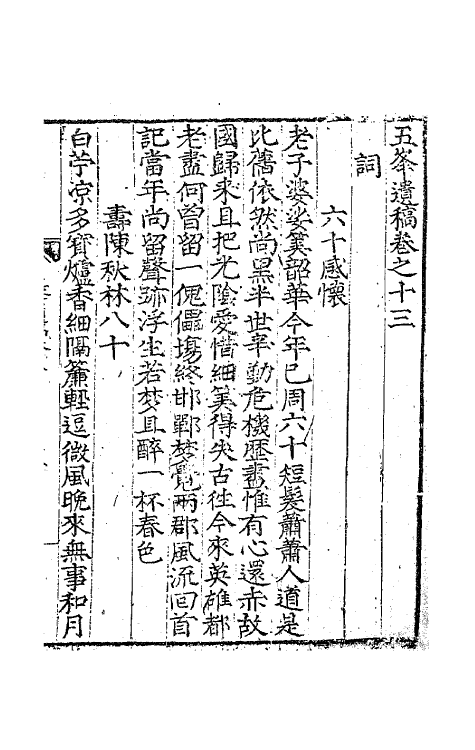 五峯遺稿卷之十三
詞
六十感懷
老子婆娑筭韶華今年已周六十短髮蕭蕭人道是
比舊依然尚黑半世辛勤危機歷盡惟有心還赤故
國歸來且把光陰愛惜細筭得失古往今來英雄都
老盡何曾留一傀儡塲終邯鄲夢覺兩郡風流回首
記當年尚留聲跡浮生若夢且醉一杯春色
壽陳秋林八十
白苧凉多寳爐香細隔簾輕逗微風晩來無事和月